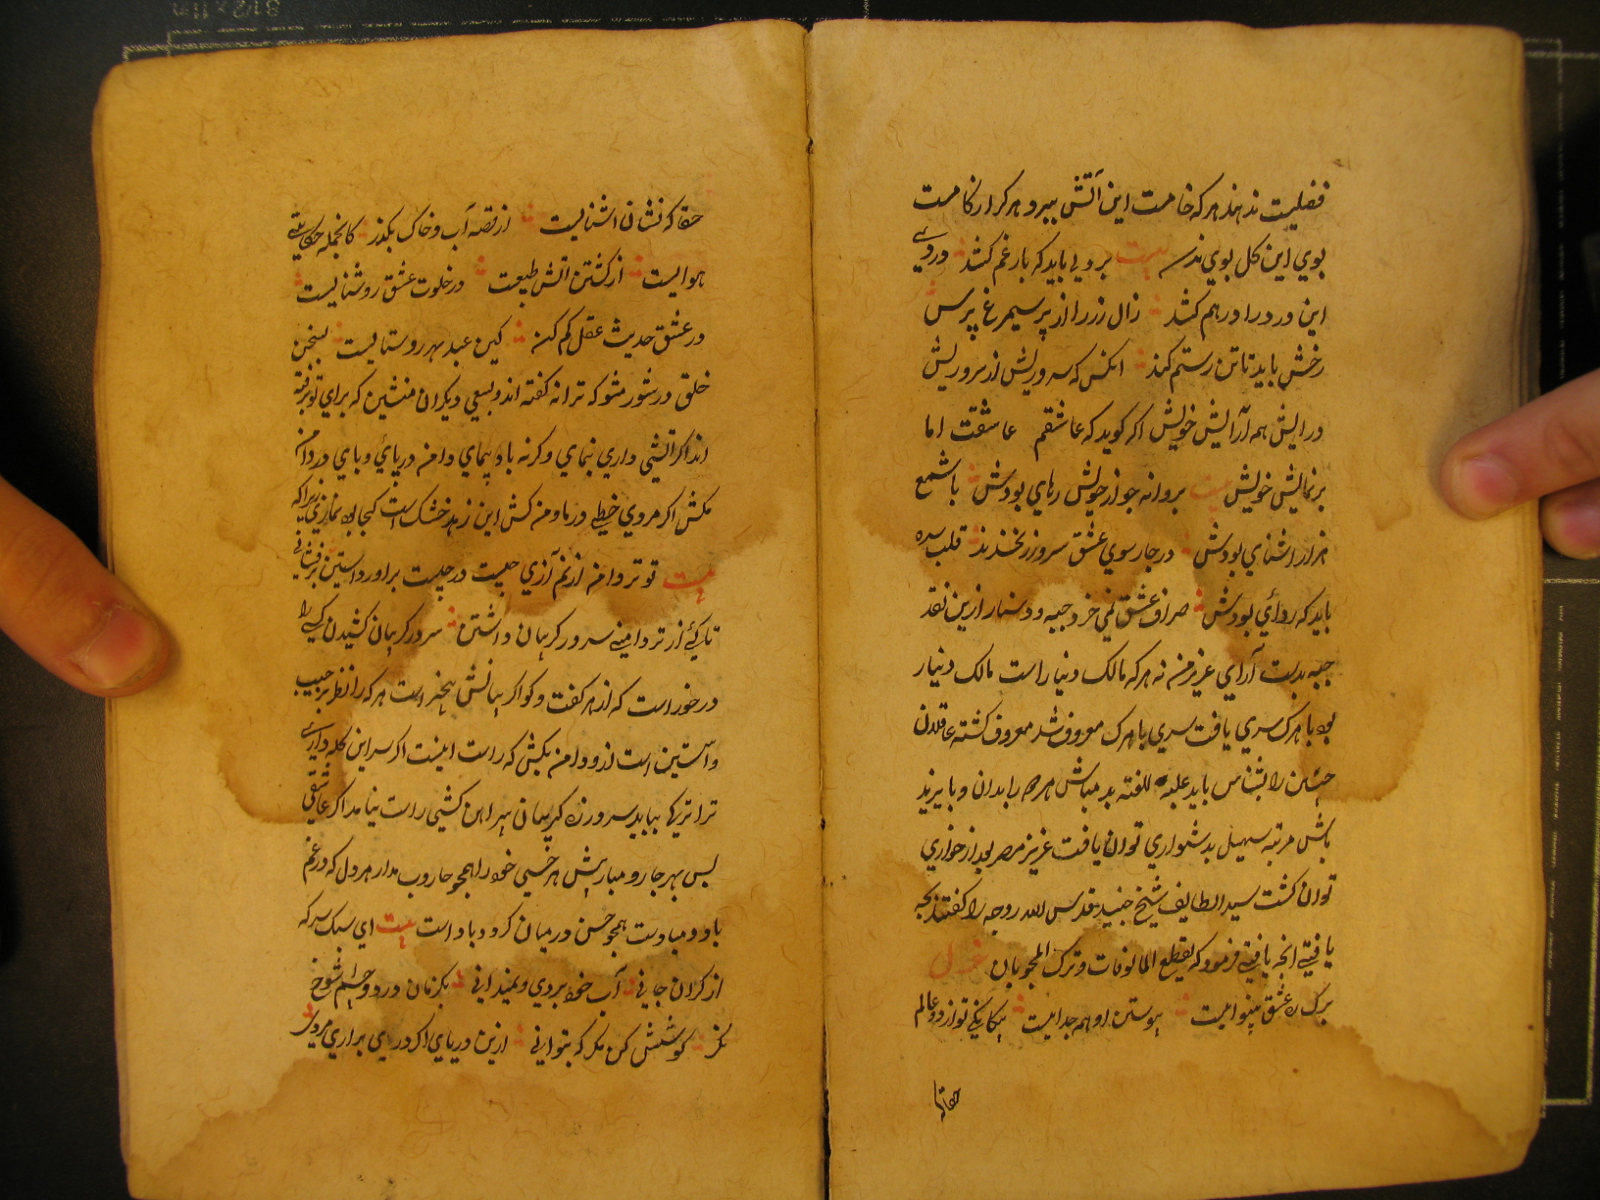 فضلیت ندهند هر که خامست این آتش ببرد هر کرا زکامست
بوی این کل بوی ندرسه بیت بردی باید که بار غم کشد دردی
این درد را درهم کشد زال زر را از پر سیمرغ پرس
رخش باید تا تن رستم کند انکس که سرو ریش از سرو ریش
درایش هم آرایش خویش اکر کوید که عاشقم عاشقست اما
بر نمایش خویش بیت بروانه جو از خویش رهای بودش با شمع
هزار اشنای بودش در چار سوی عشق سرو زر نخرند قلب سره
باید که روائی بودش صراف عشق نمی خرد جبه و دستار ازین نقد
جبه بدست آرای عزیز من نه هر که مالک دنیا راست مالک دینار
بود با هرک سری یافت سری با هرک معروف شد معروف کشته عاقلان
چنین را بشناس باید علیه اللعنه بد مباش هرچه رابدان و با یزید
باش مرتبه سهیل بدشواری توان یافت عزیز مصر بعد از خواری
توان کشت سید الطایف شیخ جنید قدس الله روحه را کفتند بچه
یافتی انچه یافتی فرمود که بقطع المالوفات و ترک المحبوبات غزل
برک ره عشق بینوائیست پیوستن او هم جدائیست بیکانکی تو از دو عالم
حقا که
حقا که نشان اشنائیست از نقه آب و خاک بکذر کانجمله حکایتی
هوائیست از کشتن آتش طبیعت در خلوت عشق روشنائیست
در عشق حدیث عقل کم کن کین عبد مهر روستائیست بسخن
خلق در شور مشو که ترانه کفته اند و بسعی دیکران منشین که برای تو نرفته
اند اکر آتشی داری بنمای و کرنه باد پیمای دامن دریائی و بای در دامن
مکش اکر مردی خیط درپا و من کش این زهد خشک است کجا بود نمازی زیرا که
بیت تو تر دامن از نم آزی جیبت در جیبت براور داستین بر فشانی
تاکئ از تر دامنی سر در کریبان داشتن سر در کریبان کشیدن کسی را
در خور است که از هر کفت و کو اکریبانش بیخبر است هر که را نظر بر جیب
و استین است ازو دامن بکش که راست اینست اکر سر این کله داری
ترا ترکها بباید سر و زن کریبان پیراهن کشیی راست نیامد اکر عاشقی
بس بهر جا رو مباریش هر خسی خود را همجو جاروب مدار هر دل که در غم
باد و مبادست همجو حسن در میان کرد و باد است بیت ای سبک سر که
از کران جانی آب خود بردی و نمیدانی یکزمان درد و جسم شوخ
نکر کوشش کن مکر که بتوانی ازین دریای اکر دری براری مردی